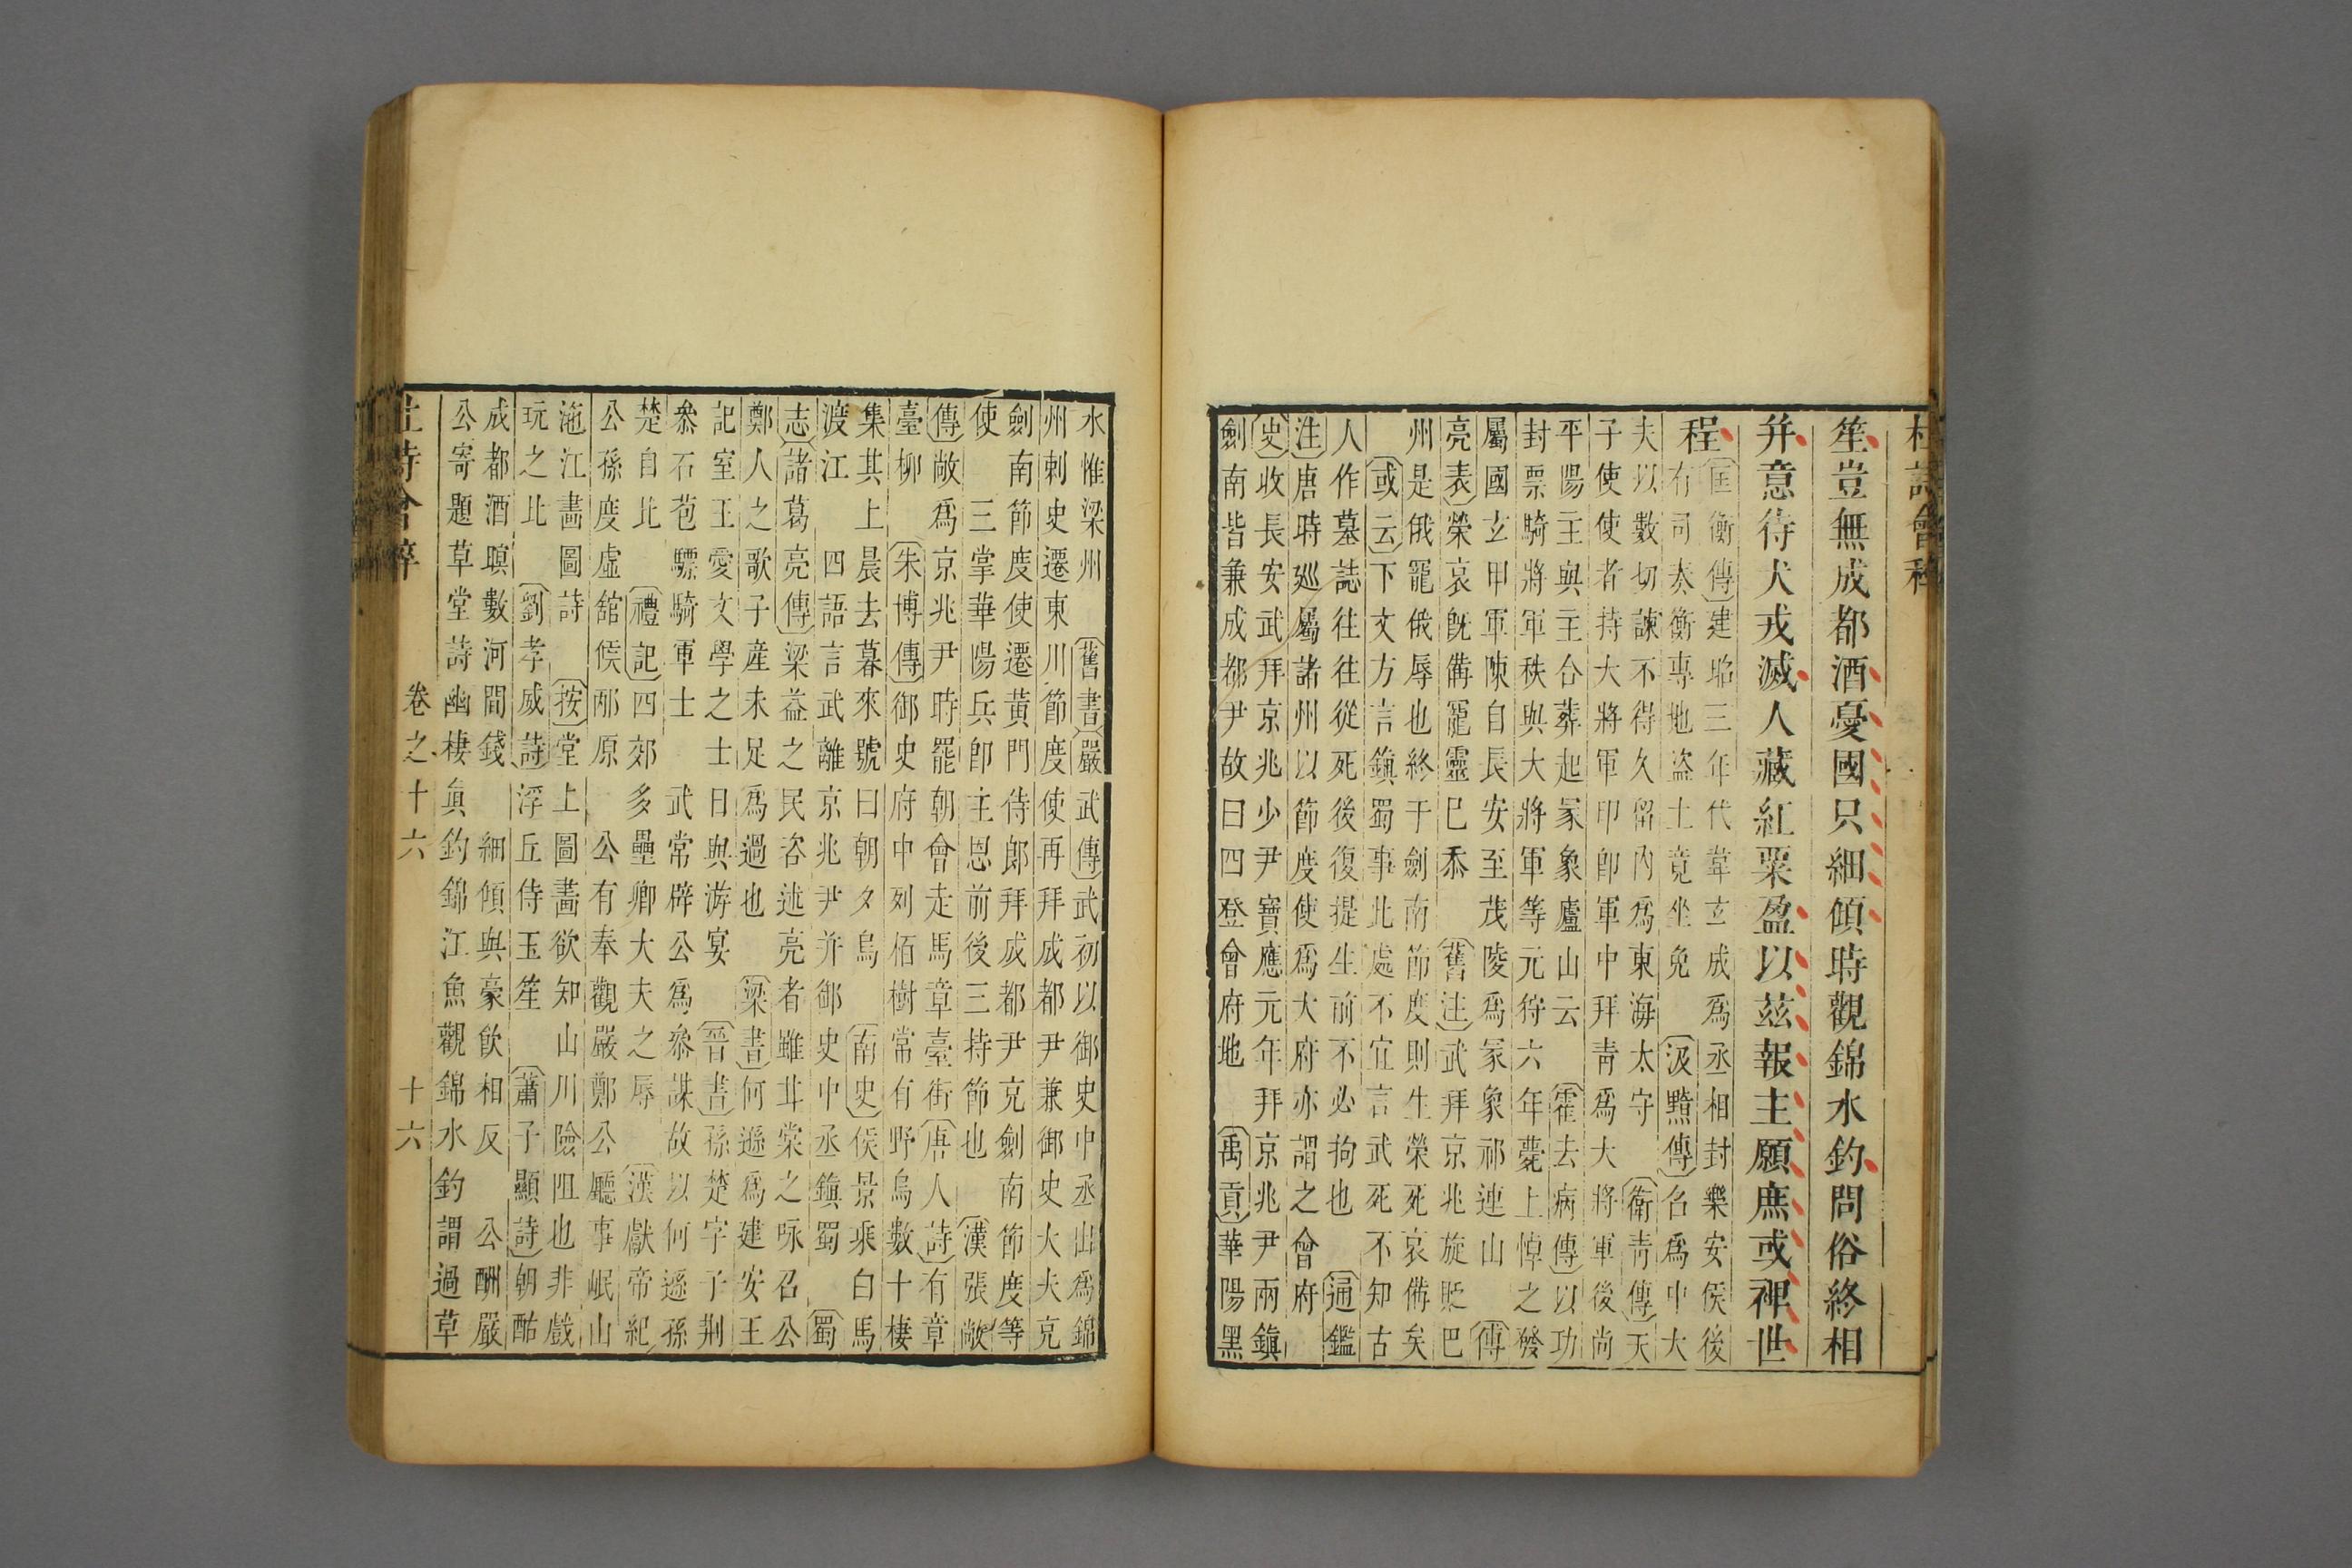 杜詩會稡
笙豈無成都酒憂國只細傾時觀錦水釣問俗終相
并意待犬戎滅人藏紅粟盈以茲報主願庶或裨世
程
匡衡傳建昭三年代韋玄成爲丞相封樂安侯後
有司奏衡專地盜土竟坐免 汲黯傳召爲中大
夫以數切諫不得久留內爲東海太守 衛青傳天
子使使者持大將軍印卽軍中拜青爲大將軍後尚
平陽主與主合葬起冢象廬山云 霍去病傳以功
封票騎將軍秩與大將軍等元狩六年薨上悼之發
屬國玄甲軍陳自長安至茂陵爲冢象祁連山 傳
亮表榮哀旣備寵靈已泰 舊注武拜京兆旋貶巴
州是俄寵俄辱也終于劍南節度則生榮死哀備矣
或云下文方言鎮蜀事此處不宜言武死不知古
人作墓誌往往從死後復提生前不必拘也 通鑑
注唐時廵屬諸州以節度使爲大府亦謂之會府
史收長安武拜京兆少尹寶應元年拜京兆尹兩鎮
劍南皆兼成都尹故曰四登會府地 禹貢華陽黑
水惟梁州 舊書嚴武傳武初以御史中丞出爲錦
州刺史遷東川節度使再拜成都尹兼御史大夫克
劍南節度使遷黃門侍郎拜成都尹克劍南節度等
使 三掌華陽兵卽主恩前後三持節也 漢張敞
傳敞爲京兆尹時罷朝會走馬章臺街 唐人詩有章
臺柳 朱博傳御史府中列栢樹常有野烏數十棲
集其上晨去暮來號曰朝夕烏 南史侯景乘白馬
渡江 四語言武離京兆尹并御史中丞鎮蜀 蜀
志諸葛亮傳梁益之民咨述亮者雖甘棠之咏召公
鄭人之歌子產未足爲過也 梁書何遜爲建安王
記室王愛文學之士日與游宴 晉書孫楚字子荆
叅石苞驃騎軍士 武常辟公爲叅謀故以何遜孫
楚自比 禮記四郊多壘卿大夫之辱 漢獻帝紀
公孫度虛舘候邴原 公有奉觀嚴鄭公廳事岷山
沲江畫圖詩 按堂上圖畫欲知山川險阻也非戲
玩之比 劉孝威詩浮丘侍玉笙 蕭子顯詩朝酤
成都酒暝數河間錢 細傾與豪飲相反 公酬嚴
公寄題草堂詩幽棲眞釣錦江魚觀錦水釣謂過草
杜詩會稡 卷之十六 十六